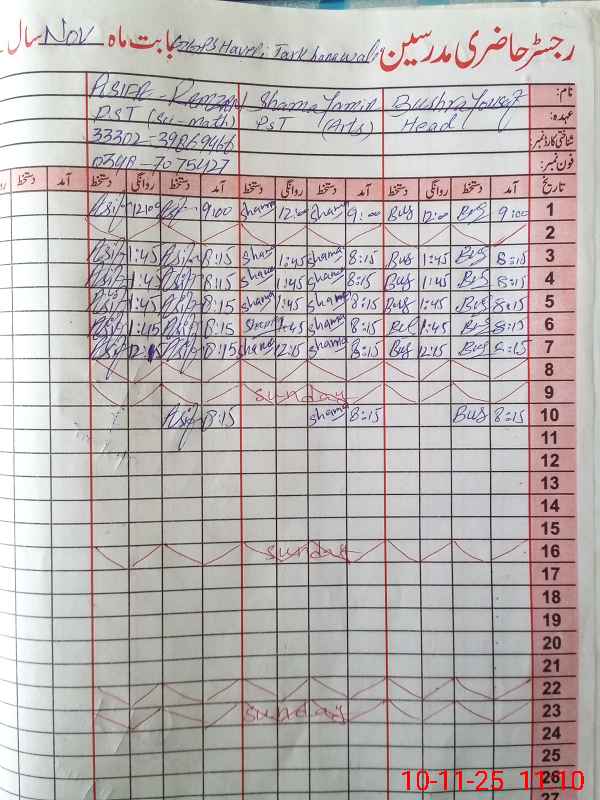 رجسٹر حاضری مدرسین GGPS Haveli Tarkhanawali بابت ماہ NOV سال
نام: Bushra Yousaf Shama Yamin ASIER - REHMAN
عہدہ: Head PST (Arts) PST (Su-math)
شناختی کارڈ نمبر: 33302-3986946
فون نمبر: 0348-7075427
تاریخ آمد دستخط روانگی دستخط آمد دستخط روانگی دستخط آمد دستخط روانگی دستخط آمد دستخط
1 9:00 Bus 12:00 Bus 9:00 Shama 12:00 Shama 9:00 Asif 12:00 Asif
2
3 8:15 Bus 1:45 Bus 8:15 Shama 1:45 Shama 8:15 Asif 1:45 Asif
4 8:15 Bus 1:45 Bus 8:15 Shama 1:45 Shama 8:15 Asif 1:45 Asif
5 8:15 Bus 1:45 Bus 8:15 Shama 1:45 Shama 8:15 Asif 1:45 Asif
6 8:15 Bus 1:45 Bus 8:15 Shama 1:45 Shama 8:15 Asif 1:45 Asif
7 8:15 Bus 12:15 Bus 8:15 Shama 12:15 Shama 8:15 Asif 12:15 Asif
8
9 Sunday
10 8:15 Bus 8:15 Shama 8:15 Asif
11
12
13
14
15
16 Sunday
17
18
19
20
21
22
23 Sunday
24
25
26
27
10-11-25 11:10